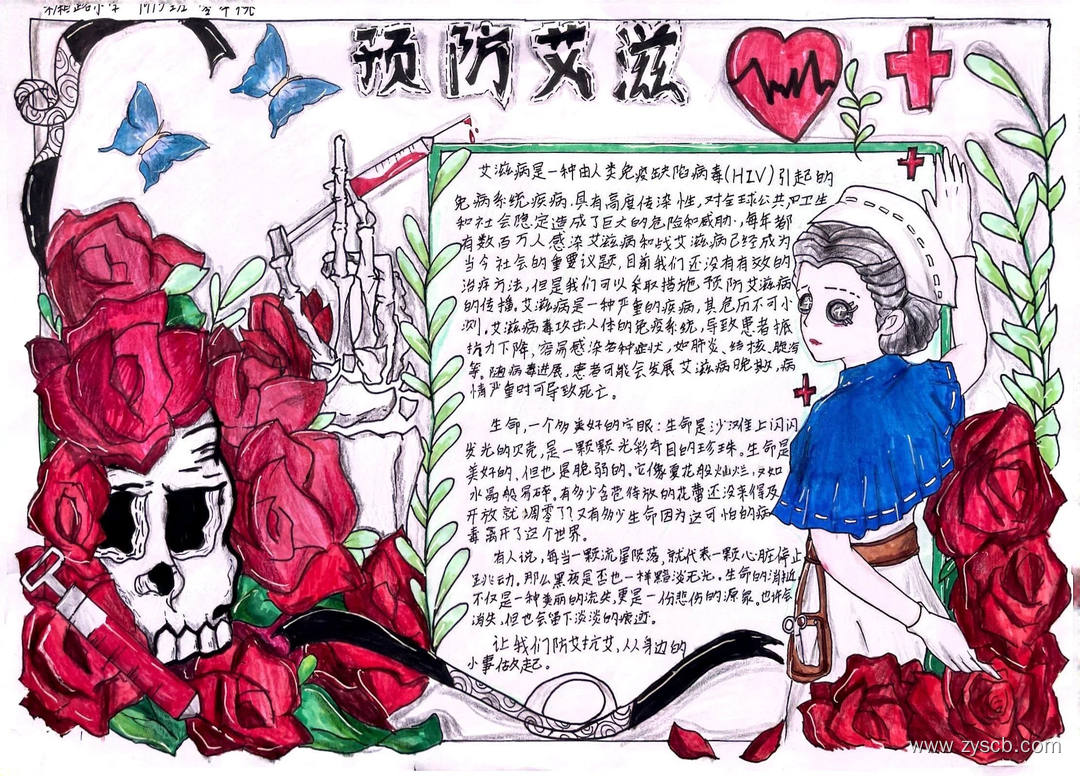 预防艾滋
艾滋病是一种由人类免疫缺陷病毒(HIV)引起的
免病系统疾病.具有高度传染性,对全球公共卫生
和社会隐定造成了巨大的危险和威胁,每年都
有数百万人感染艾滋病和战艾滋病已经成为
当今社会的重要议题,目前我们还没有有效的
治疗方法,但是我们可以采取措施,预防艾滋病
的传播。艾滋病是一种严重的疾病,其危历不可小
测,艾滋病毒攻击人体的免疫系统,导致患者抵
抗力下降,容易感染各种症状,如肺炎、结核、腹泻
等。随病毒进展,患者可能会发展艾滋病晚散,病
情严重时可导致死亡。
生命,一个多美好的字眼:生命是沙滩上闪闪
发光的贝壳,是一颗颗光彩夺目的珍珠。生命是
美好的,但也是脆弱的,它像夏花般灿烂,又如
水晶般易碎。有多少含苞待放的花蕾还没来得及
开放就凋零了?又有多少生命因为这可怕的病
毒离开了这个世界。
有人说,每当一颗流星陨落,就代表一颗心脏停止
跳动,那么黑夜是否也一样黯淡无光。生命的消逝
不仅是一种美丽的流失,更是一份悲伤的源泉。也许会
消失,但也会留下淡淡的痕迹。
让我们防艾抗艾,从身边的
小事做起。
www.zyscb.com